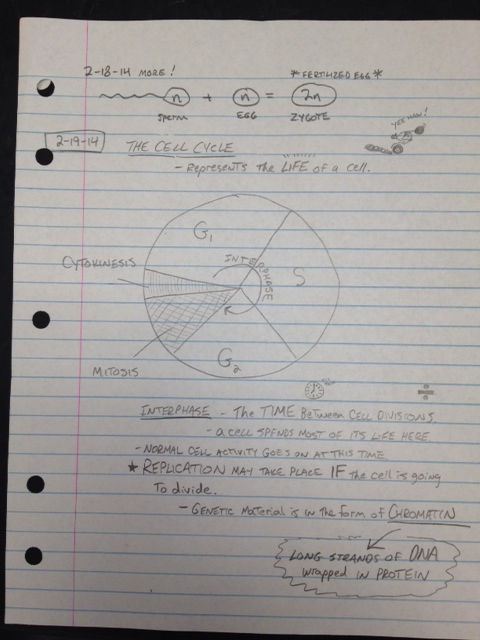 2-18-14 MORE!
* FERTILIZED EGG *
n + n = 2n
SPERM EGG ZYGOTE
YEE HAW!
2-19-14
THE CELL CYCLE
- Represents the LIFE of a cell.
G1
INTERPHASE
S
CYTOKINESIS
MITOSIS
G2
INTERPHASE - The TIME Between CELL DIVISIONS.
- a CELL SPENDS MOST OF ITS LIFE HERE
- NORMAL CELL ACTIVITY GOES ON AT THIS TIME
★ REPLICATION MAY TAKE PLACE IF the cell is going
To divide.
- GENETIC MATERIAL is in the form of CHROMATIN
LONG STRANDS OF DNA
wrapped IN PROTEIN